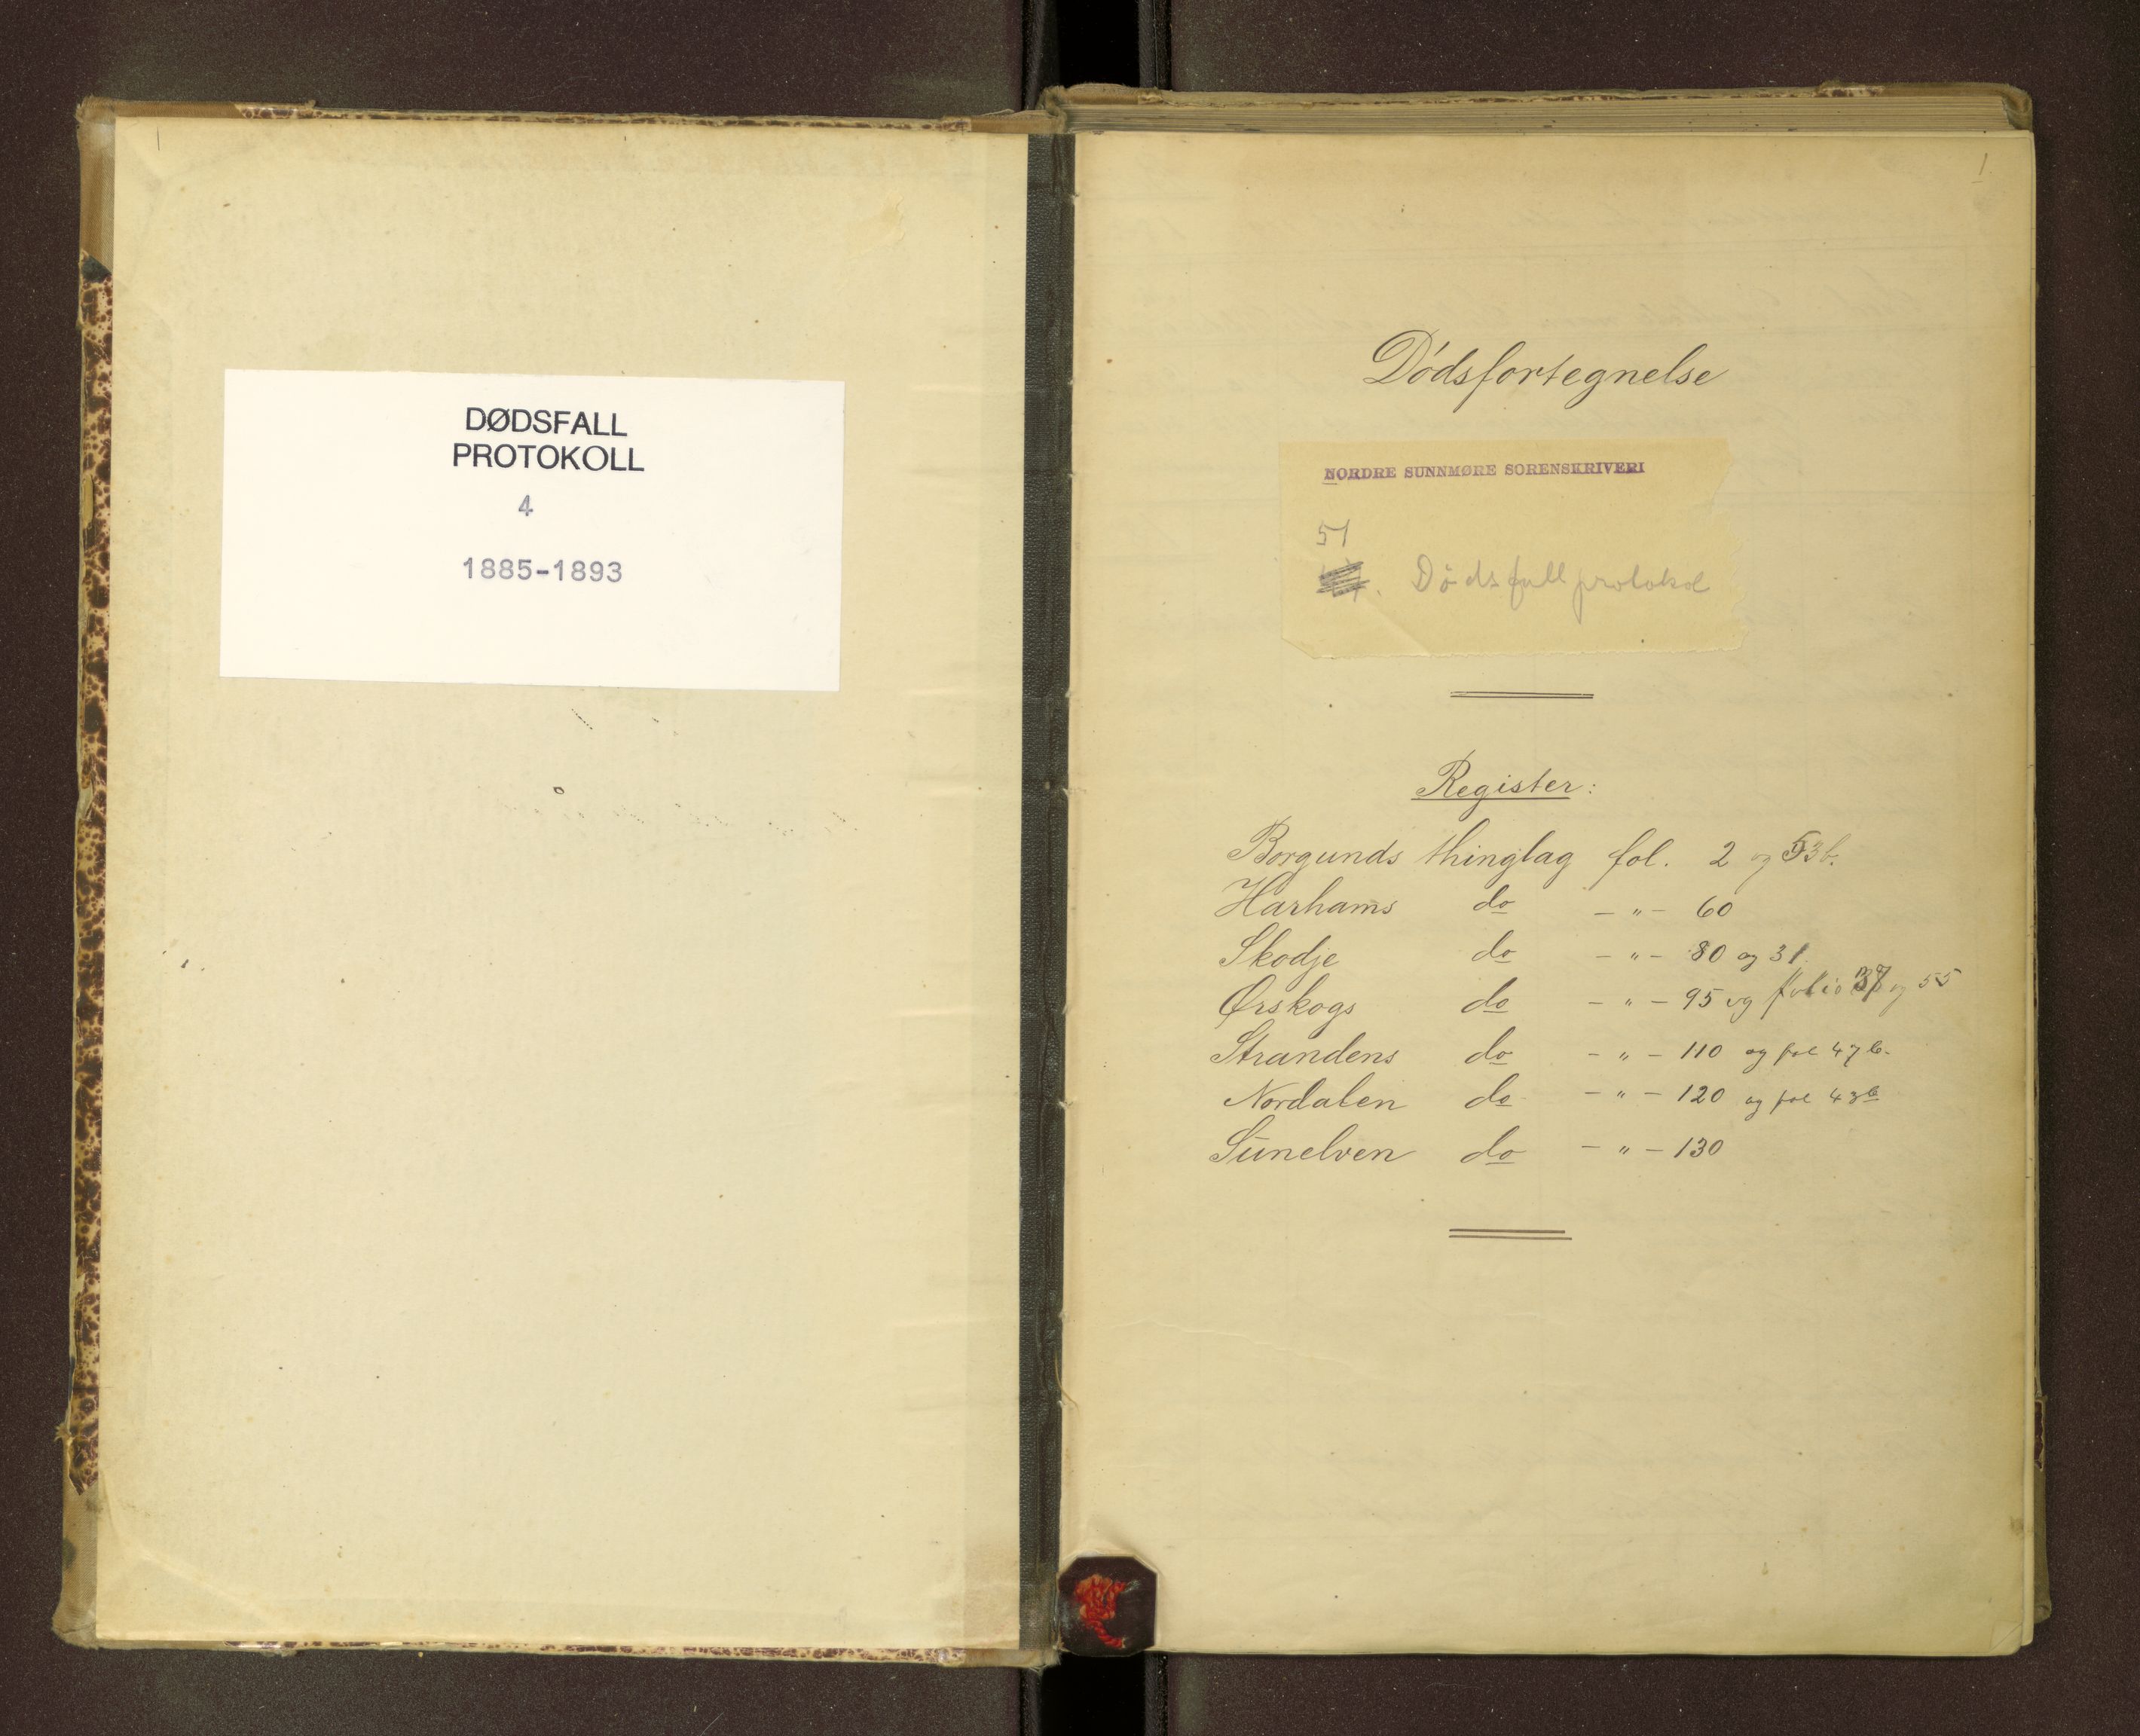 DØDSFALL
PROTOKOLL
4
1885-1893
1
Dødsfortegnelse
NORDRE SUNNMØRE SORENSKRIVERI
51
Dødsfallprotokol
Register:
Borgunds thinglag fol. 2 og 53b.
Harhams do - " - 60
Skodje do - " - 80 og 31.
Ørskogs do - " - 95 og folio 37 og 55
Strandens do - " - 110 og fol 47b.
Nordalen do - " - 120 og fol 43b
Sunelven do - " - 130